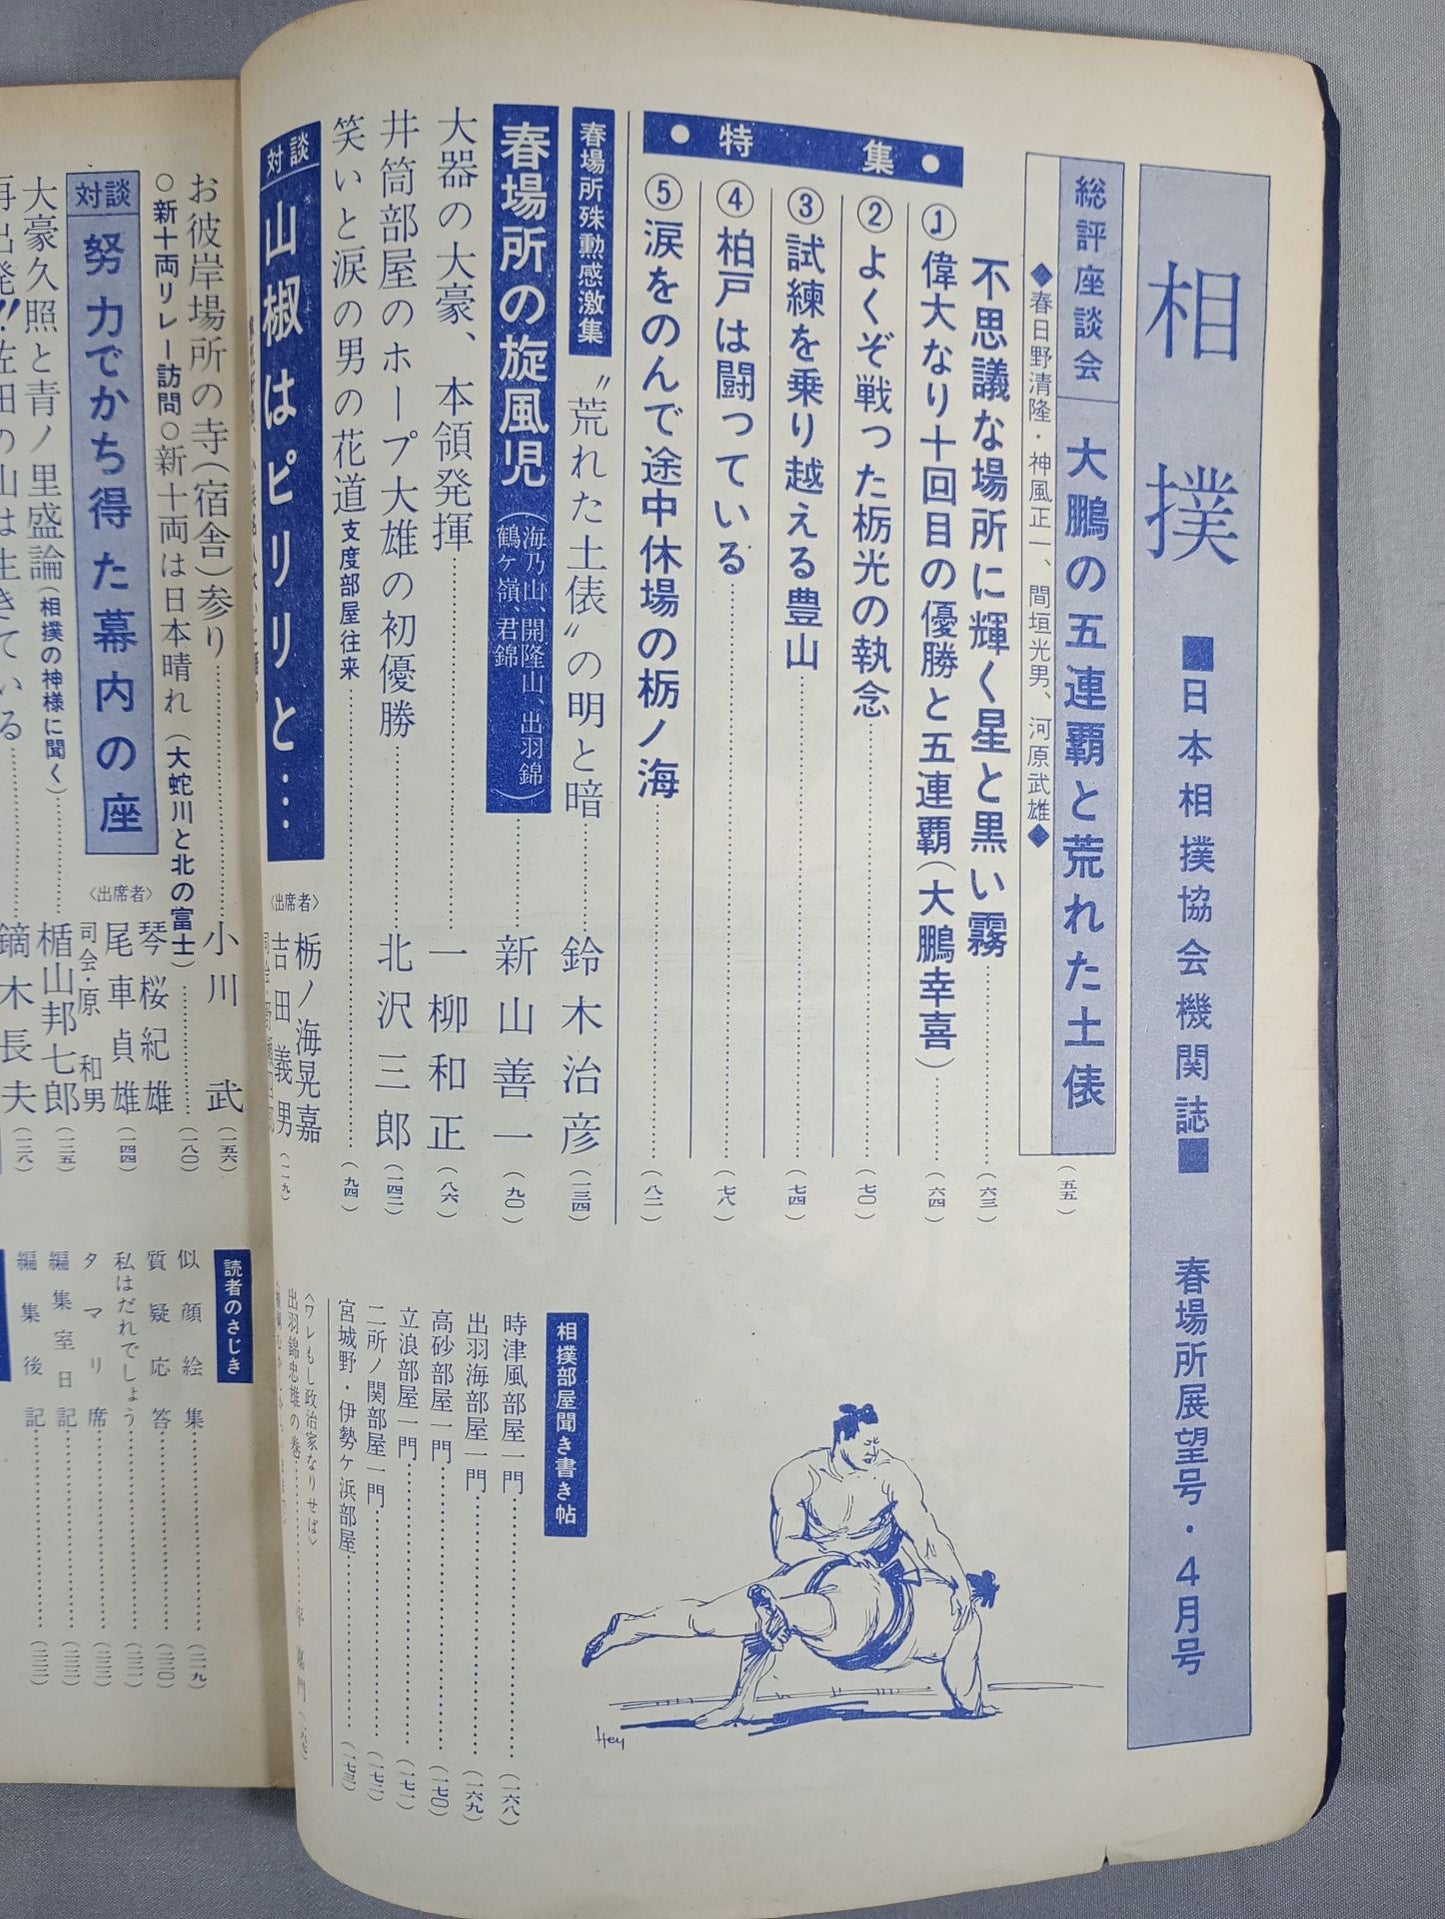 相撲
■日本相撲協会機関誌■
春場所展望号・4月号
総評座談会
大鵬の五連覇と荒れた土俵
(五五)
◆春日野清隆・神風正一、間垣光男、河原武雄◆
特集
不思議な場所に輝く星と黒い霧
(六三)
①偉大なり十回目の優勝と五連覇(大鵬幸喜)
(六四)
②よくぞ戦った栃光の執念
(七〇)
③試練を乗り越える豊山
(七四)
④柏戸は闘っている
(七八)
⑤涙をのんで途中休場の栃ノ海
(八二)
春場所殊勲感激集
〝荒れた土俵〟の明と暗
鈴木治彦
(一三四)
春場所の旋風児
(海乃山、開隆山、出羽錦
鶴ケ嶺、君錦)
新山善一
(九〇)
大器の大豪、本領発揮
一柳和正
(八六)
井筒部屋のホープ大雄の初優勝
北沢三郎
(一四二)
笑いと涙の男の花道
支度部屋往来
(九四)
対談
山椒はピリリと…
〈出席者〉
栃ノ海晃嘉
吉田義男
相撲部屋聞き書き帖
時津風部屋一門
(一六八)
出羽海部屋一門
(一六九)
高砂部屋一門
(一七〇)
立浪部屋一門
(一七一)
二所ノ関部屋一門
(一七二)
宮城野・伊勢ケ浜部屋
(一七三)
〈ワレもし政治家なりせば〉
出羽錦忠雄の巻
Hey
お彼岸場所の寺(宿舎)参り
小川武
(一五六)
○新十両リレー訪問○新十両は日本晴れ(大蛇川と北の富士)
(一八〇)
対談
努力でかち得た幕内の座
〈出席者〉
琴桜紀雄
尾車貞雄
司会・原和男
(一四四)
大豪久照と青ノ里盛論(相撲の神様に聞く)
楯山邦七郎
(一三五)
再出発!!佐田の山は生きている
鏑木長夫
(一三八)
読者のさじき
似顔絵集
(二一九)
質疑応答
(二二〇)
私はだれでしょう
タマリ席
編集室日記
編集後記